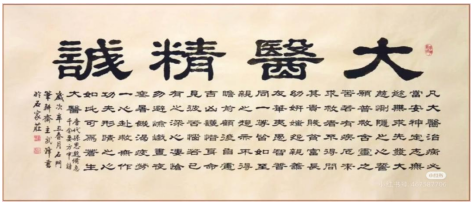 大醫精誠
凡大醫治病必
當安神定志無
欲無求先發大
慈惻隱之心誓
願普救含靈之
苦若有疾厄來
求救者不得問
其貴賤貧富長
幼妍媸怨親善
友華夷愚智普
同一等皆如至
親之想亦不得
瞻前顧後自慮
吉凶護惜身命
見彼苦惱若己
有之深心悽愴
勿避嶮巇晝夜
寒暑飢渴疲勞
一心赴救無作
功夫形跡之心
如此可為蒼生
大醫
唐代孫思邈備急
千金要方中語
歲次辛丑春月石門
筆耕齋主武書
於石家莊